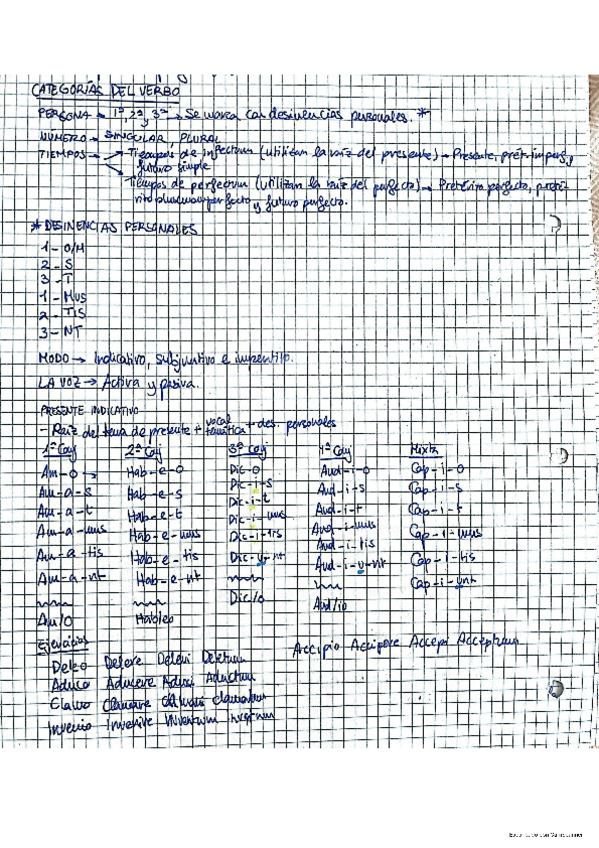 CATEGORÍAS DEL VERBO
PERSONA → 1ª, 2ª y 3ª → Se marca con desinencias personales. *
NÚMERO → SINGULAR, PLURAL
TIEMPOS → Tiempos de infectum (utilizan la raíz del presente) → Presente, prét. imperf. y
futuro simple
Tiempos de perfectum (utilizan la raíz del perfecto) → Pretérito perfecto, preté-
rito pluscuamperfecto y futuro perfecto.
* DESINENCIAS PERSONALES
1 - O/M
2 - S
3 - T
1 - MUS
2 - TIS
3 - NT
MODO → Indicativo, subjuntivo e imperativo.
LA VOZ → Activa y pasiva.
PRESENTE INDICATIVO
- Raíz del tema de presente + vocal temática + des. personales
1ª Conj 2ª Conj 3ª Conj 4ª Conj Mixta
Am-o → Hab-e-o Dic-o Aud-i-o Cap-i-o
Am-a-s Hab-e-s Dic-i-s Aud-i-s Cap-i-s
Am-a-t Hab-e-t Dic-i-t Aud-i-t Cap-i-t
Am-a-mus Hab-e-mus Dic-i-mus Aud-i-mus Cap-i-mus
Am-a-tis Hab-e-tis Dic-i-tis Aud-i-tis Cap-i-tis
Am-a-nt Hab-e-nt Dic-u-nt Aud-i-u-nt Cap-i-unt
Am/o Hab/eo Dic/o Aud/io
Ejercicios
Accipio Accipere Accepi Acceptum
Deleo Delere Delevi Deletum
Aduco Aducere Aduxi Aductum
Clamo Clamare Clamavi Clamatum
Invenio Invenire